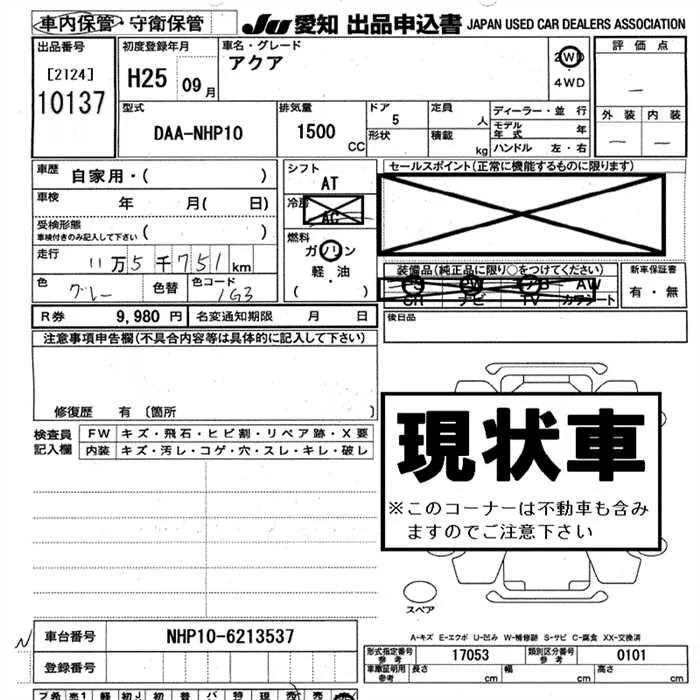 車内保管・守衛保管 JU 愛知 出品申込書 JAPAN USED CAR DEALERS ASSOCIATION
出品番号 初度登録年月 車名・グレード 評価点
[2124] H25 09月 アクア 2WD －
10137 4WD
型式 排気量 ドア 定員 ディーラー・並行 外装 内装
DAA-NHP10 1500 CC 5 人 モデル年式 年 － －
形状 積載 kg ハンドル 左・右
車歴 自家用・( ) シフト セールスポイント(正常に機能するものに限ります)
車検 年 月( 日) AT
受検形態 冷房 AC
車検付きのみ記入して下さい ( ) 燃料
走行 11万5千751km ガソリン 装備品(純正品に限り○をつけてください) 新車保証書
色 グレー 色替 色コード 1G3 軽・油 PS PW AB AW 有・無
( ) SR ナビ TV カワシート
R券 9,980円 名変通知期限 月 日 後日品
注意事項申告欄(不具合内容等は具体的に記入して下さい)
修復歴 有 〔箇所 〕
検査員 FW キズ・飛石・ヒビ割・リペア跡・X要
記入欄 内装 キズ・汚レ・コゲ・穴・スレ・キレ・破レ
現状車
※このコーナーは不動車も含み
ますのでご注意下さい
スペア
A-キズ E-エクボ U-凹み W-補修跡 S-サビ C-腐食 XX-交換済
車台番号 NHP10-6213537 形式指定番号 参考 17053 類別区分番号 参考 0101
登録番号 車庫証明用 参考 長さ cm 幅 cm 高さ cm